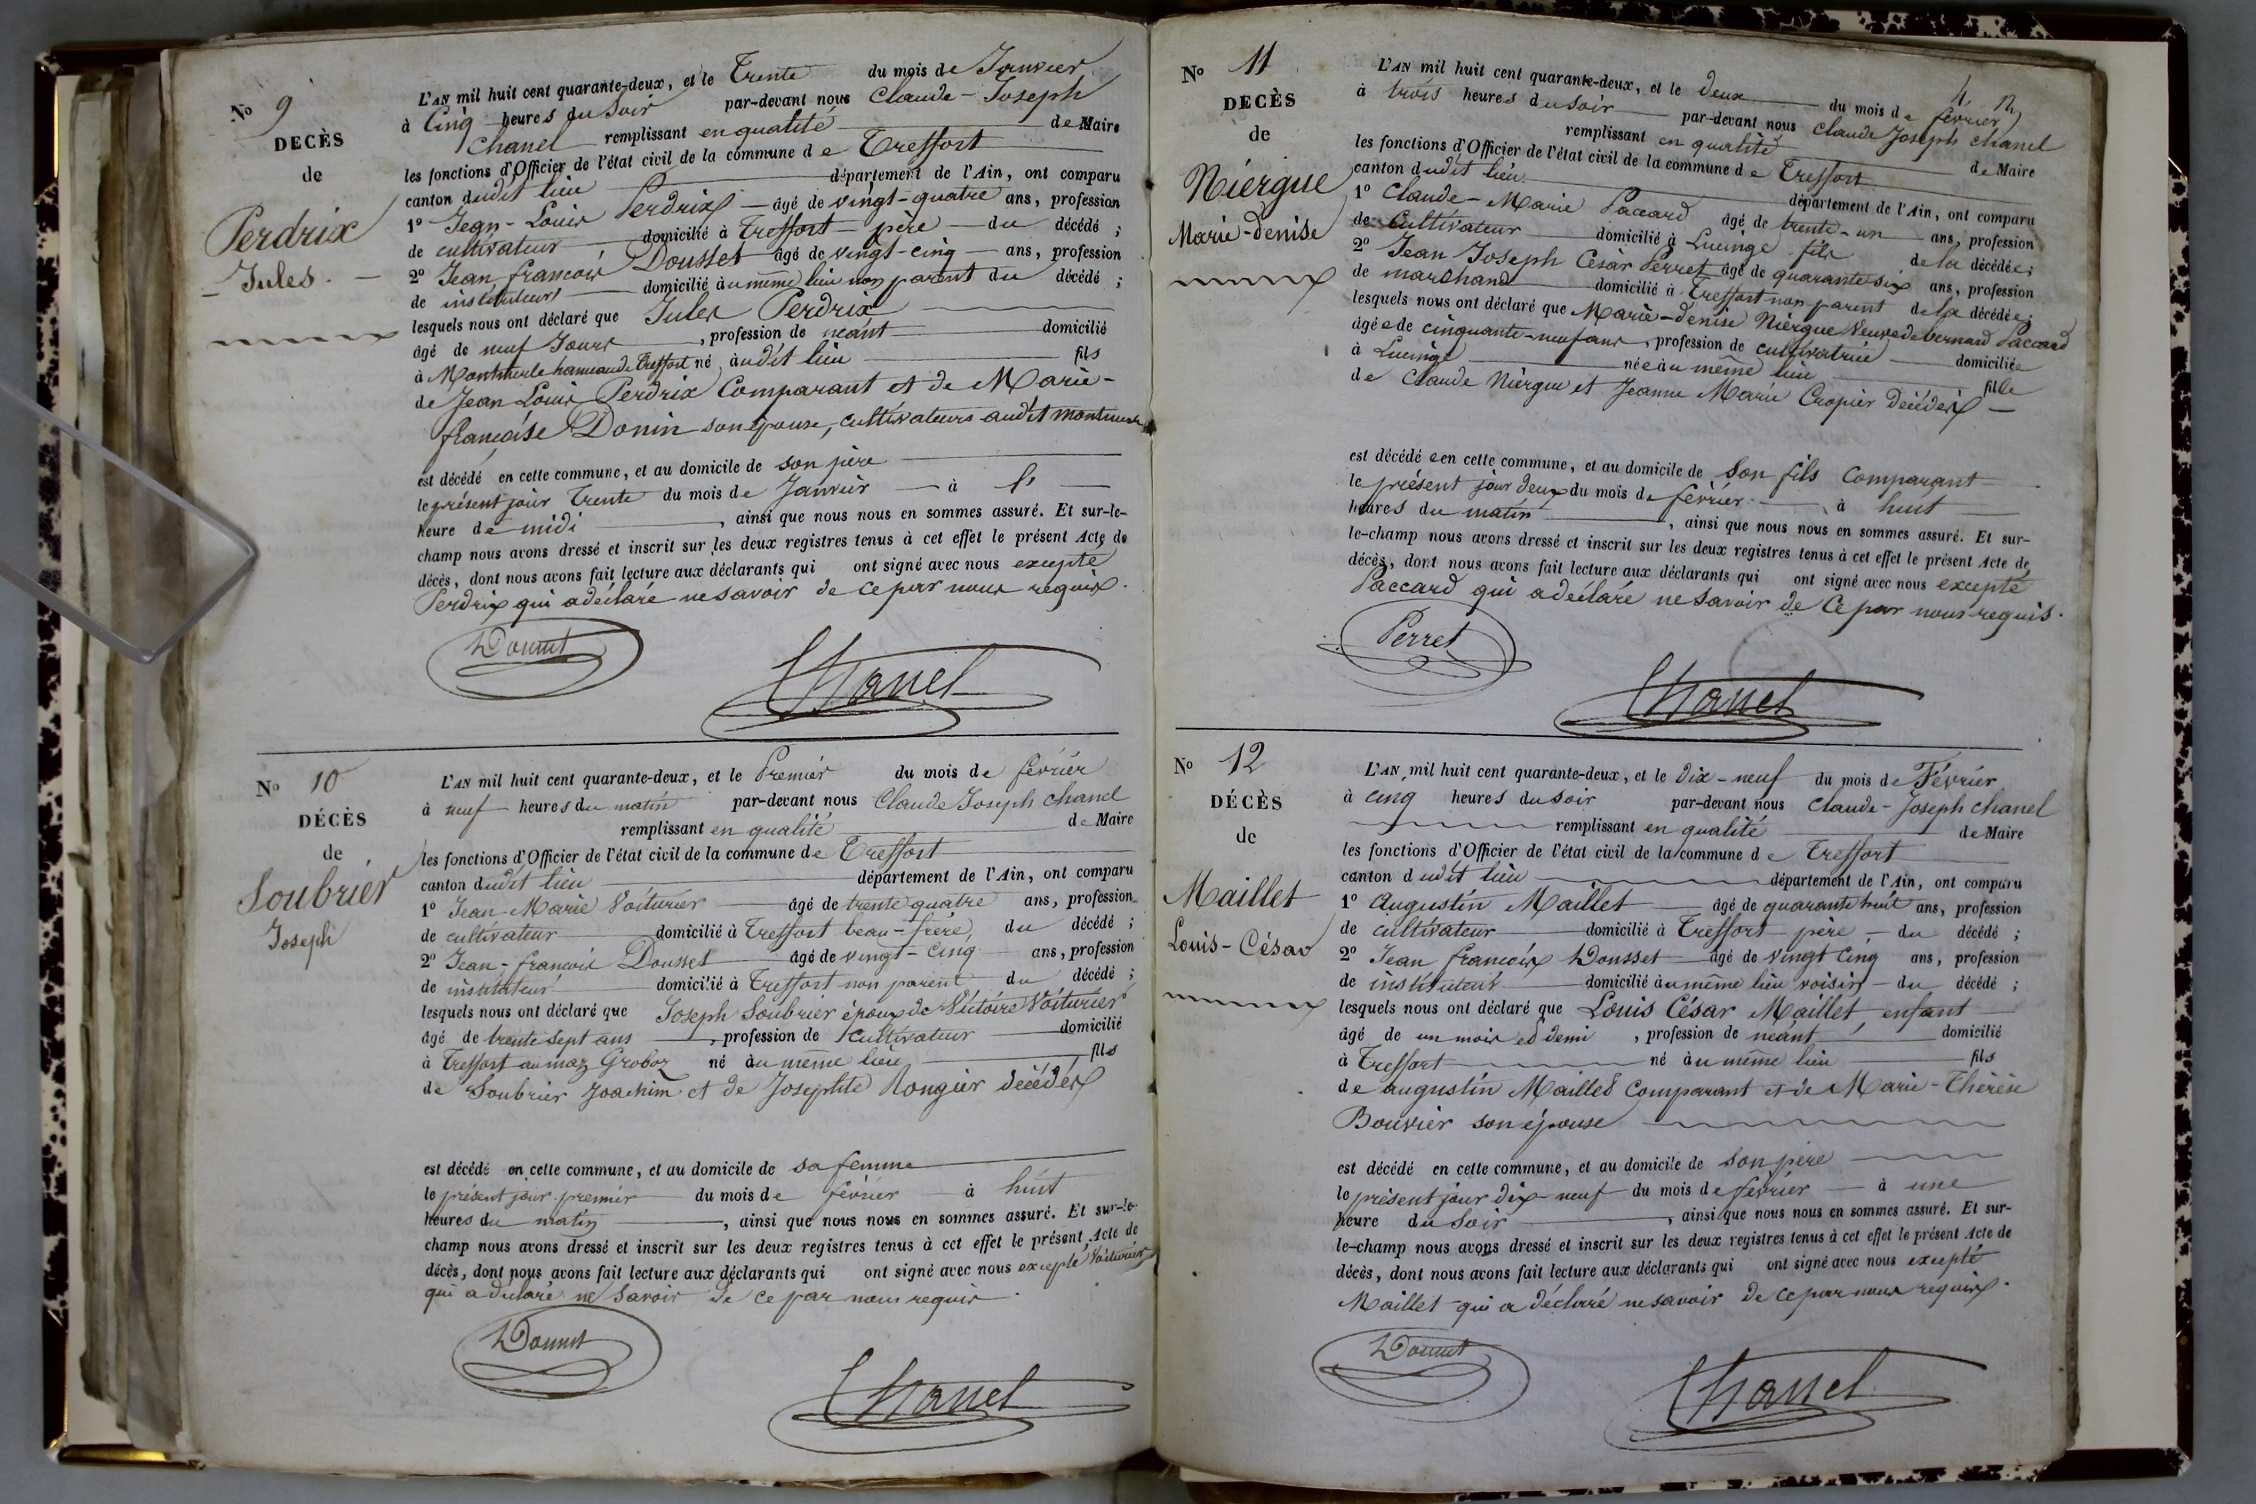 No 9
DECÈS
de
Perdrix
Jules.
L'AN mil huit cent quarante-deux, et le Trente du mois de Janvier
à Cinq heures du Soir par-devant nous Claude-Joseph
Chanel remplissant en qualité de Maire
les fonctions d'Officier de l'état civil de la commune de Treffort
canton dudit lieu département de l'Ain, ont comparu
1º Jean-Louis Perdrix âgé de vingt-quatre ans, profession
de cultivateur domicilié à Treffort père du décédé ;
2º Jean francois Dousset âgé de vingt-cinq ans, profession
de instituteur domicilié au même lieu non parent du décédé ;
lesquels nous ont déclaré que Jules Perdrix
âgé de neuf Jours, profession de néant domicilié
à Montmerle hameau de Treffort né audit lieu fils
de Jean Louis Perdrix Comparant et de Marie-
françoise Donin son épouse, cultivateurs audit
est décédé en cette commune, et au domicile de son père
le présent jour Trente du mois de Janvier à
heure de midi, ainsi que nous nous en sommes assuré. Et sur-le-
champ nous avons dressé et inscrit sur les deux registres tenus à cet effet le présent Acte de
décès, dont nous avons fait lecture aux déclarants qui ont signé avec nous excepté
Perdrix qui a déclaré ne savoir de ce par nous requis.
Dousset
Chanel
No 10
DÉCÈS
de
Soubrier
Joseph
L'AN mil huit cent quarante-deux, et le Premier du mois de février
à neuf heures du matin par-devant nous Claude Joseph Chanel
remplissant en qualité de Maire
les fonctions d'Officier de l'état civil de la commune de Treffort
canton dudit lieu département de l'Ain, ont comparu
1º Jean-Marie Voiturier âgé de trente quatre ans, profession
de cultivateur domicilié à Treffort beau-frère, du décédé ;
2º Jean-francois Dousset âgé de vingt-cinq ans, profession
de instituteur domicilié à Treffort non parent du décédé ;
lesquels nous ont déclaré que Joseph Soubrier époux de Victoire Voiturier
âgé de trente sept ans, profession de Cultivateur domicilié
à Treffort au maz Groboz né au même lieu fils
de Soubrier Joachim et de Josephte Rongier décédés
est décédé en cette commune, et au domicile de sa femme
le présent jour premier du mois de février à huit
heures du matin, ainsi que nous nous en sommes assuré. Et sur-le-
champ nous avons dressé et inscrit sur les deux registres tenus à cet effet le présent Acte de
décès, dont nous avons fait lecture aux déclarants qui ont signé avec nous excepté Voiturier
qui a déclaré ne savoir de ce par nous requis.
Dousset
Chanel
No 11
DECÈS
de
Niérgue
Marie-denise
L'AN mil huit cent quarante-deux, et le deux du mois de février
à trois heures du soir par-devant nous Claude Joseph Chanel
remplissant en qualité de Maire
les fonctions d'Officier de l'état civil de la commune de Treffort
canton dudit lieu département de l'Ain, ont comparu
1º Claude-Marie Paccard âgé de trente-un ans, profession
de Cultivateur domicilié à Lucinge fils de la décédée ;
2º Jean Joseph César Perret âgé de quarante six ans, profession
de marchand domicilié à Treffort non parent de la décédée ;
lesquels nous ont déclaré que Marie-denise Niérgue Veuve de bernard Paccard
âgée de cinquante-neuf ans, profession de cultivatrice domiciliée
à Lucinge née au même lieu fille
de Claude Niérgue et Jeanne Marie Cropier décédés
est décédée en cette commune, et au domicile de son fils Comparant
le présent jour deux du mois de février à huit
heures du matin, ainsi que nous nous en sommes assuré. Et sur-
le-champ nous avons dressé et inscrit sur les deux registres tenus à cet effet le présent Acte de
décès, dont nous avons fait lecture aux déclarants qui ont signé avec nous excepté
Paccard qui a déclaré ne savoir de Ce par nous requis.
Perret
Chanel
No 12
DÉCÈS
de
Maillet
Louis-César
L'AN mil huit cent quarante-deux, et le dix-neuf du mois de Février
à cinq heures du soir par-devant nous Claude-Joseph Chanel
remplissant en qualité de Maire
les fonctions d'Officier de l'état civil de la commune de Treffort
canton dudit lieu département de l'Ain, ont comparu
1º Augustin Maillet âgé de quarante huit ans, profession
de cultivateur domicilié à Treffort père du décédé ;
2º Jean francois Dousset âgé de vingt cinq ans, profession
de instituteur domicilié au même lieu voisin du décédé ;
lesquels nous ont déclaré que Louis César Maillet, enfant
âgé de un mois et demi, profession de néant domicilié
à Treffort né au même lieu fils
de augustin Maillet Comparant et de Marie-Thérèse
Bouvier son épouse
est décédé en cette commune, et au domicile de son père
le présent jour dix-neuf du mois de février à une
heure du Soir, ainsi que nous nous en sommes assuré. Et sur-
le-champ nous avons dressé et inscrit sur les deux registres tenus à cet effet le présent Acte de
décès, dont nous avons fait lecture aux déclarants qui ont signé avec nous excepté
Maillet qui a déclaré ne savoir de ce par nous requis.
Dousset
Chanel